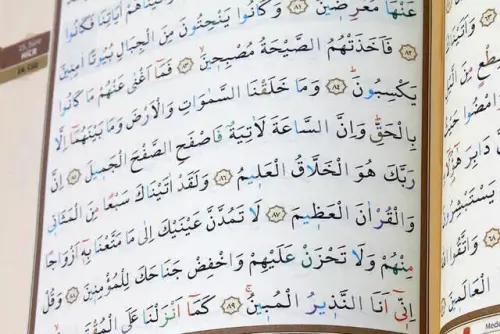 اٰيَاتِنَا فَكَانُوا
عَنْهَا مُعْرِضِينَۙ ﴿٨١﴾ وَكَانُوا يَنْحِتُونَ مِنَ الْجِبَالِ بُيُوتًا اٰمِنِينَ
﴿٨٢﴾ فَاَخَذَتْهُمُ الصَّيْحَةُ مُصْبِحِينَۙ ﴿٨٣﴾ فَمَٓا اَغْنٰى عَنْهُمْ مَا كَانُوا
يَكْسِبُونَۜ ﴿٨٤﴾ وَمَا خَلَقْنَا السَّمٰوَاتِ وَالْاَرْضَ وَمَا بَيْنَهُمَٓا اِلَّا
بِالْحَقِّۜ وَاِنَّ السَّاعَةَ لَاٰتِيَةٌ فَاصْفَحِ الصَّفْحَ الْجَمِيلَ ﴿٨٥﴾ اِنَّ
رَبَّكَ هُوَ الْخَلَّاقُ الْعَلِيمُ ﴿٨٦﴾ وَلَقَدْ اٰتَيْنَاكَ سَبْعًا مِنَ الْمَثَانِي
وَالْقُرْاٰنَ الْعَظِيمَ ﴿٨٧﴾ لَا تَمُدَّنَّ عَيْنَيْكَ اِلٰى مَا مَتَّعْنَا بِهٖٓ اَزْوَاجًا
مِنْهُمْ وَلَا تَحْزَنْ عَلَيْهِمْ وَاخْفِضْ جَنَاحَكَ لِلْمُؤْمِنِينَ ﴿٨٨﴾ وَقُلْ
اِنّٖٓي اَنَا النَّذِيرُ الْمُبِينُۚ ﴿٨٩﴾ كَمَٓا اَنْزَلْنَا عَلَى